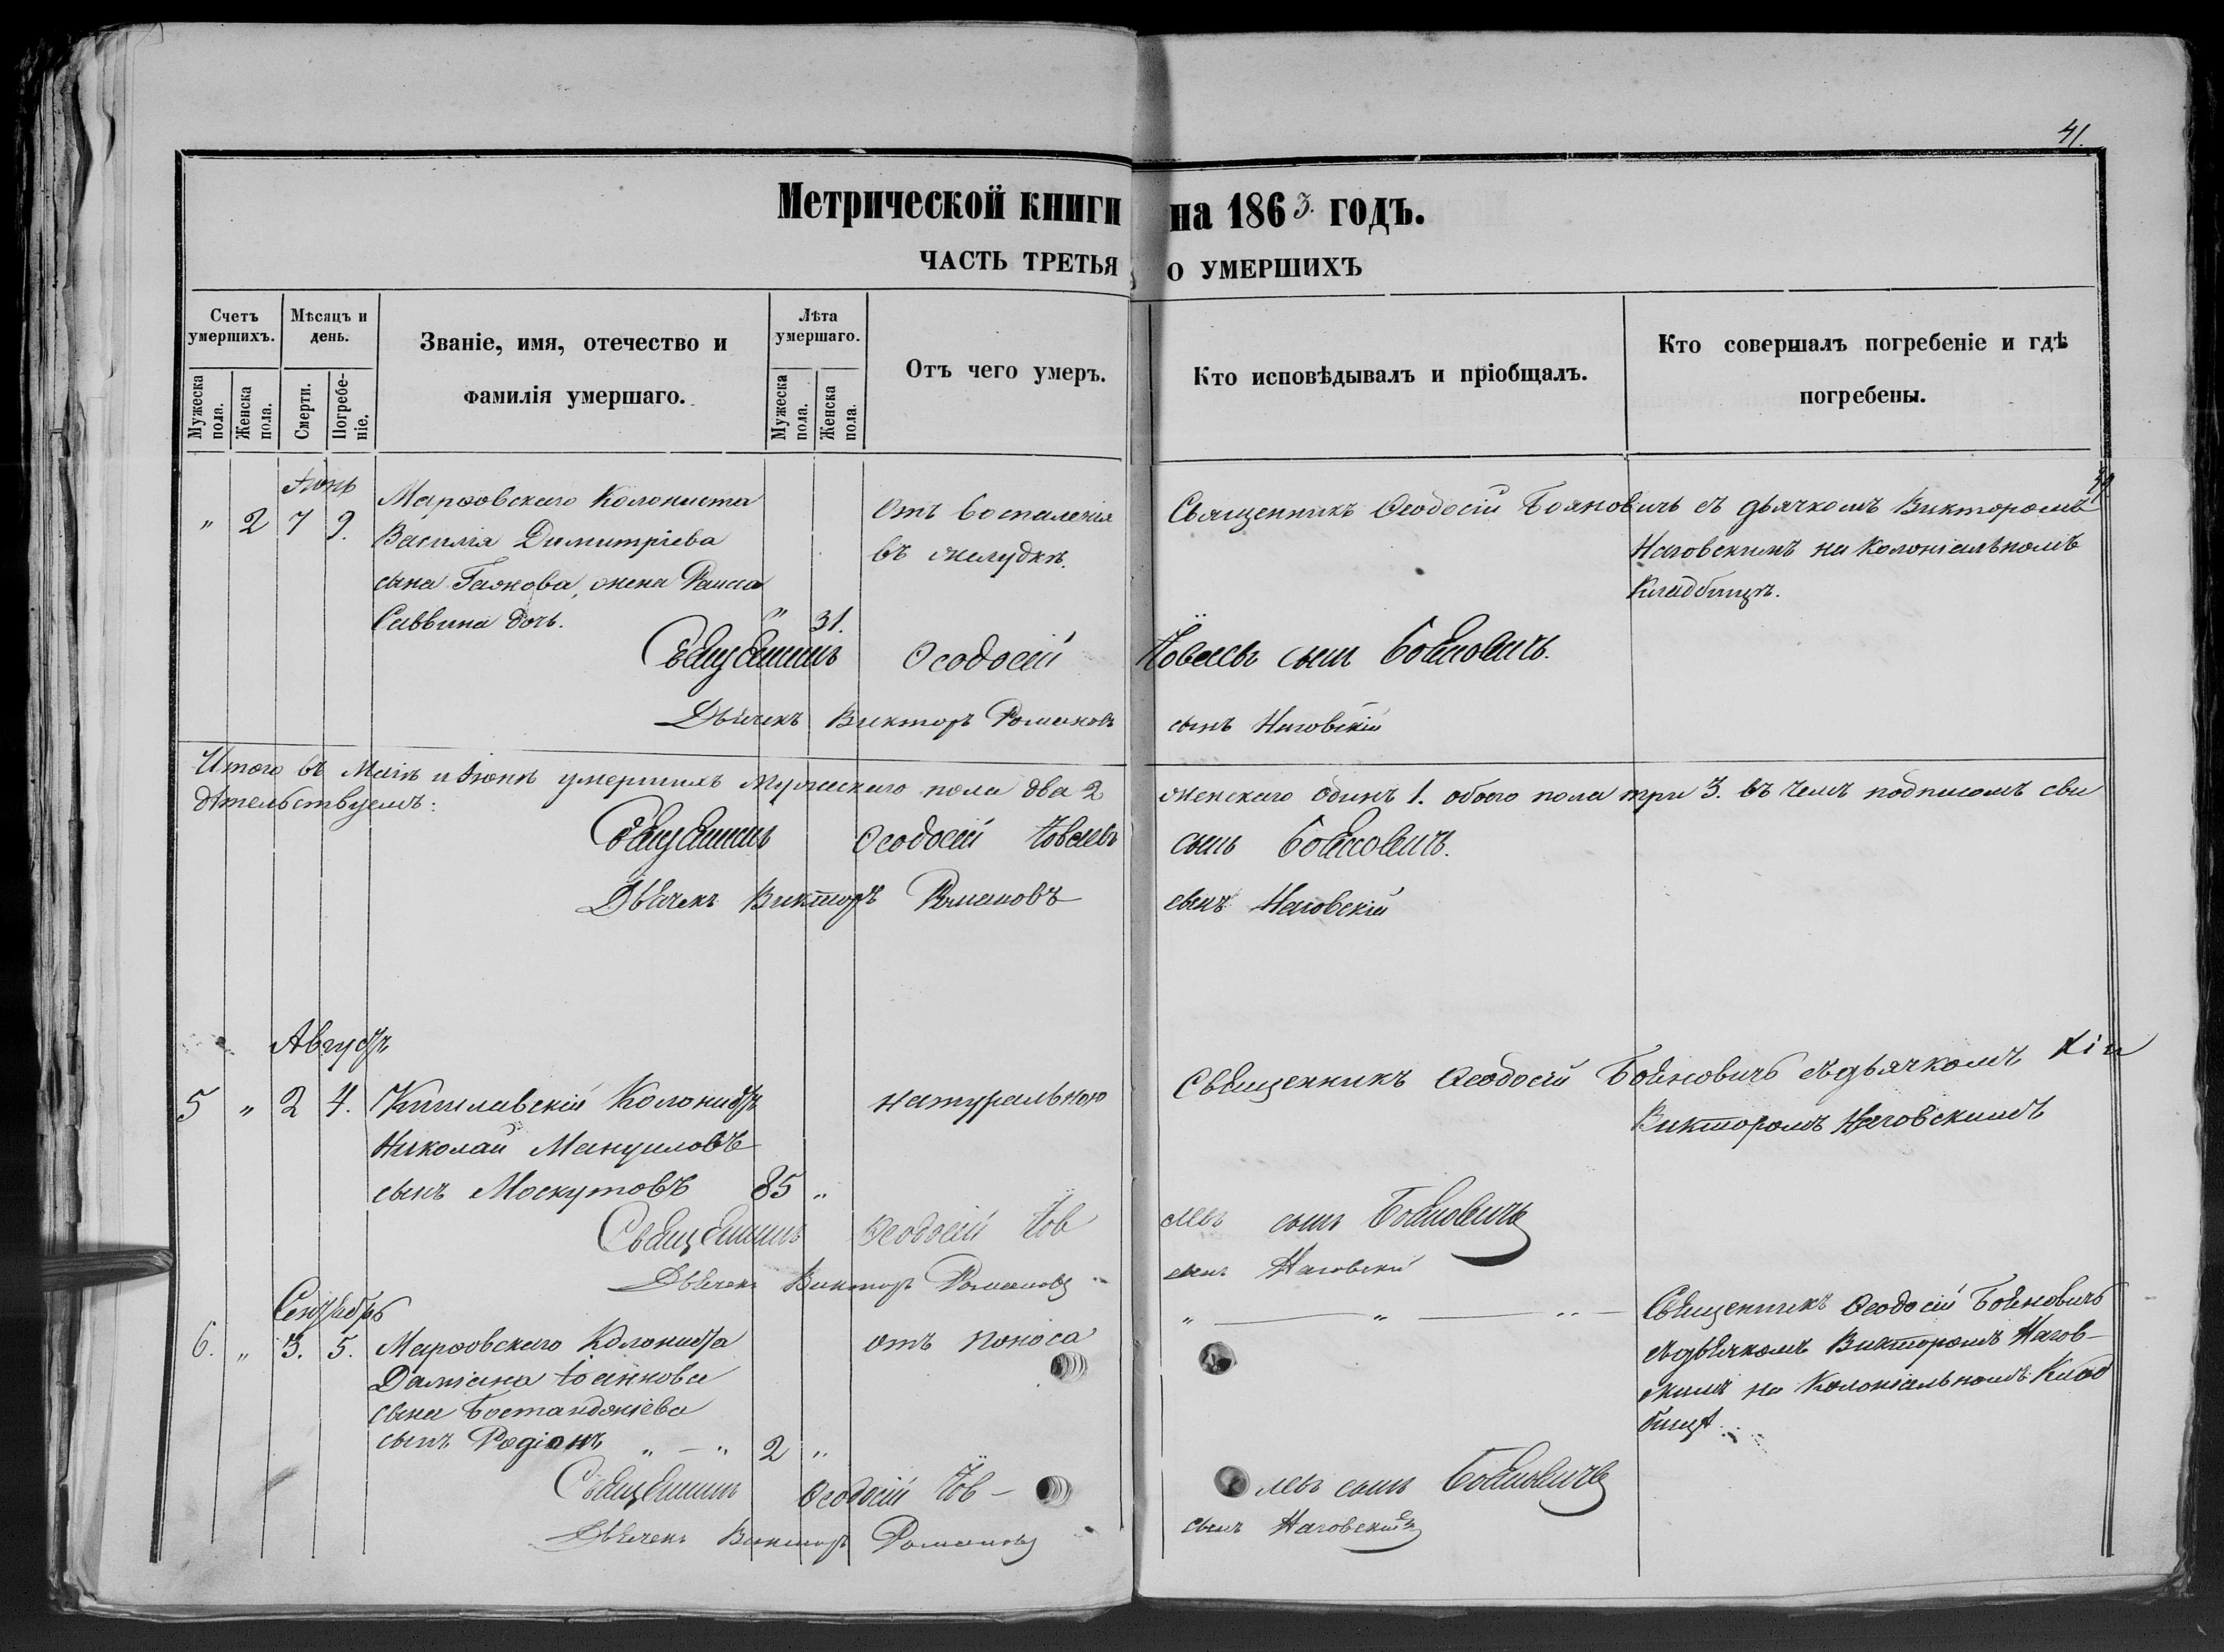 41.
Метрической книги на 1863. годъ.
ЧАСТЬ ТРЕТЬЯ О УМЕРШИХЪ
Счетъ умершихъ.
Мужеска пола.
Женска пола.
Мѣсяцъ и день.
Смерти.
Погребе-
ніе.
Званіе, имя, отечество и
фамилія умершаго.
Лѣта умершаго.
Мужеска пола.
Женска пола.
Отъ чего умеръ.
Кто исповѣдывалъ и пріобщалъ.
Кто совершалъ погребеніе и гдѣ
погребены.
" 2 7 9.
Марфовскаго Колониста
Василія Димитріева
сына Гаюкова, жена Раиса
Саввина дочь. " 31.
отъ воспаленія
въ желудкѣ.
Священникъ Ѳеодосій Бояновичь съ дьячкомъ Викторомъ
Наговскимъ на Колоніальномъ
Кладбищѣ.
Священникъ Ѳеодосій Іовлевъ сынъ Бояновичъ.
Дьячекъ Викторъ Романовъ сынъ Наговскій
Итого въ Маѣ и Іюнѣ умершихъ мужескаго пола два 2 женскаго одинъ 1. обоего пола три 3. въ чемъ подписомъ сви
дѣтельствуемъ:
Священникъ Ѳеодосій Іовлевъ сынъ Бояновичъ.
Дьячекъ Викторъ Романовъ сынъ Наговскій
Августъ
5 " 2 4. Колонистъ
Николай Мануиловъ
сынъ Москутовъ 85 "
натуральною
Священникъ Ѳеодосій Бояновичь съ дьячкомъ
Викторомъ Наговскимъ
Священникъ Ѳеодосій Іовлевъ сынъ Бояновичъ
Дьячекъ Викторъ Романовъ сынъ Наговскій
Сентябрь
6. " 3. 5. Марфовскаго Колониста
Даміана Іоаннова
сына Бостанджіева
сынъ Родіонъ " — " 2 "
отъ поноса
" — " — "
Священникъ Ѳеодосій Бояновичь
съ дьячкомъ Викторомъ Нагов-
скимъ на Колоніальномъ Клад
бищѣ
Священникъ Ѳеодосій Іов-левъ сынъ Бояновичъ
Дьячекъ Викторъ Романовъ сынъ Наговскій